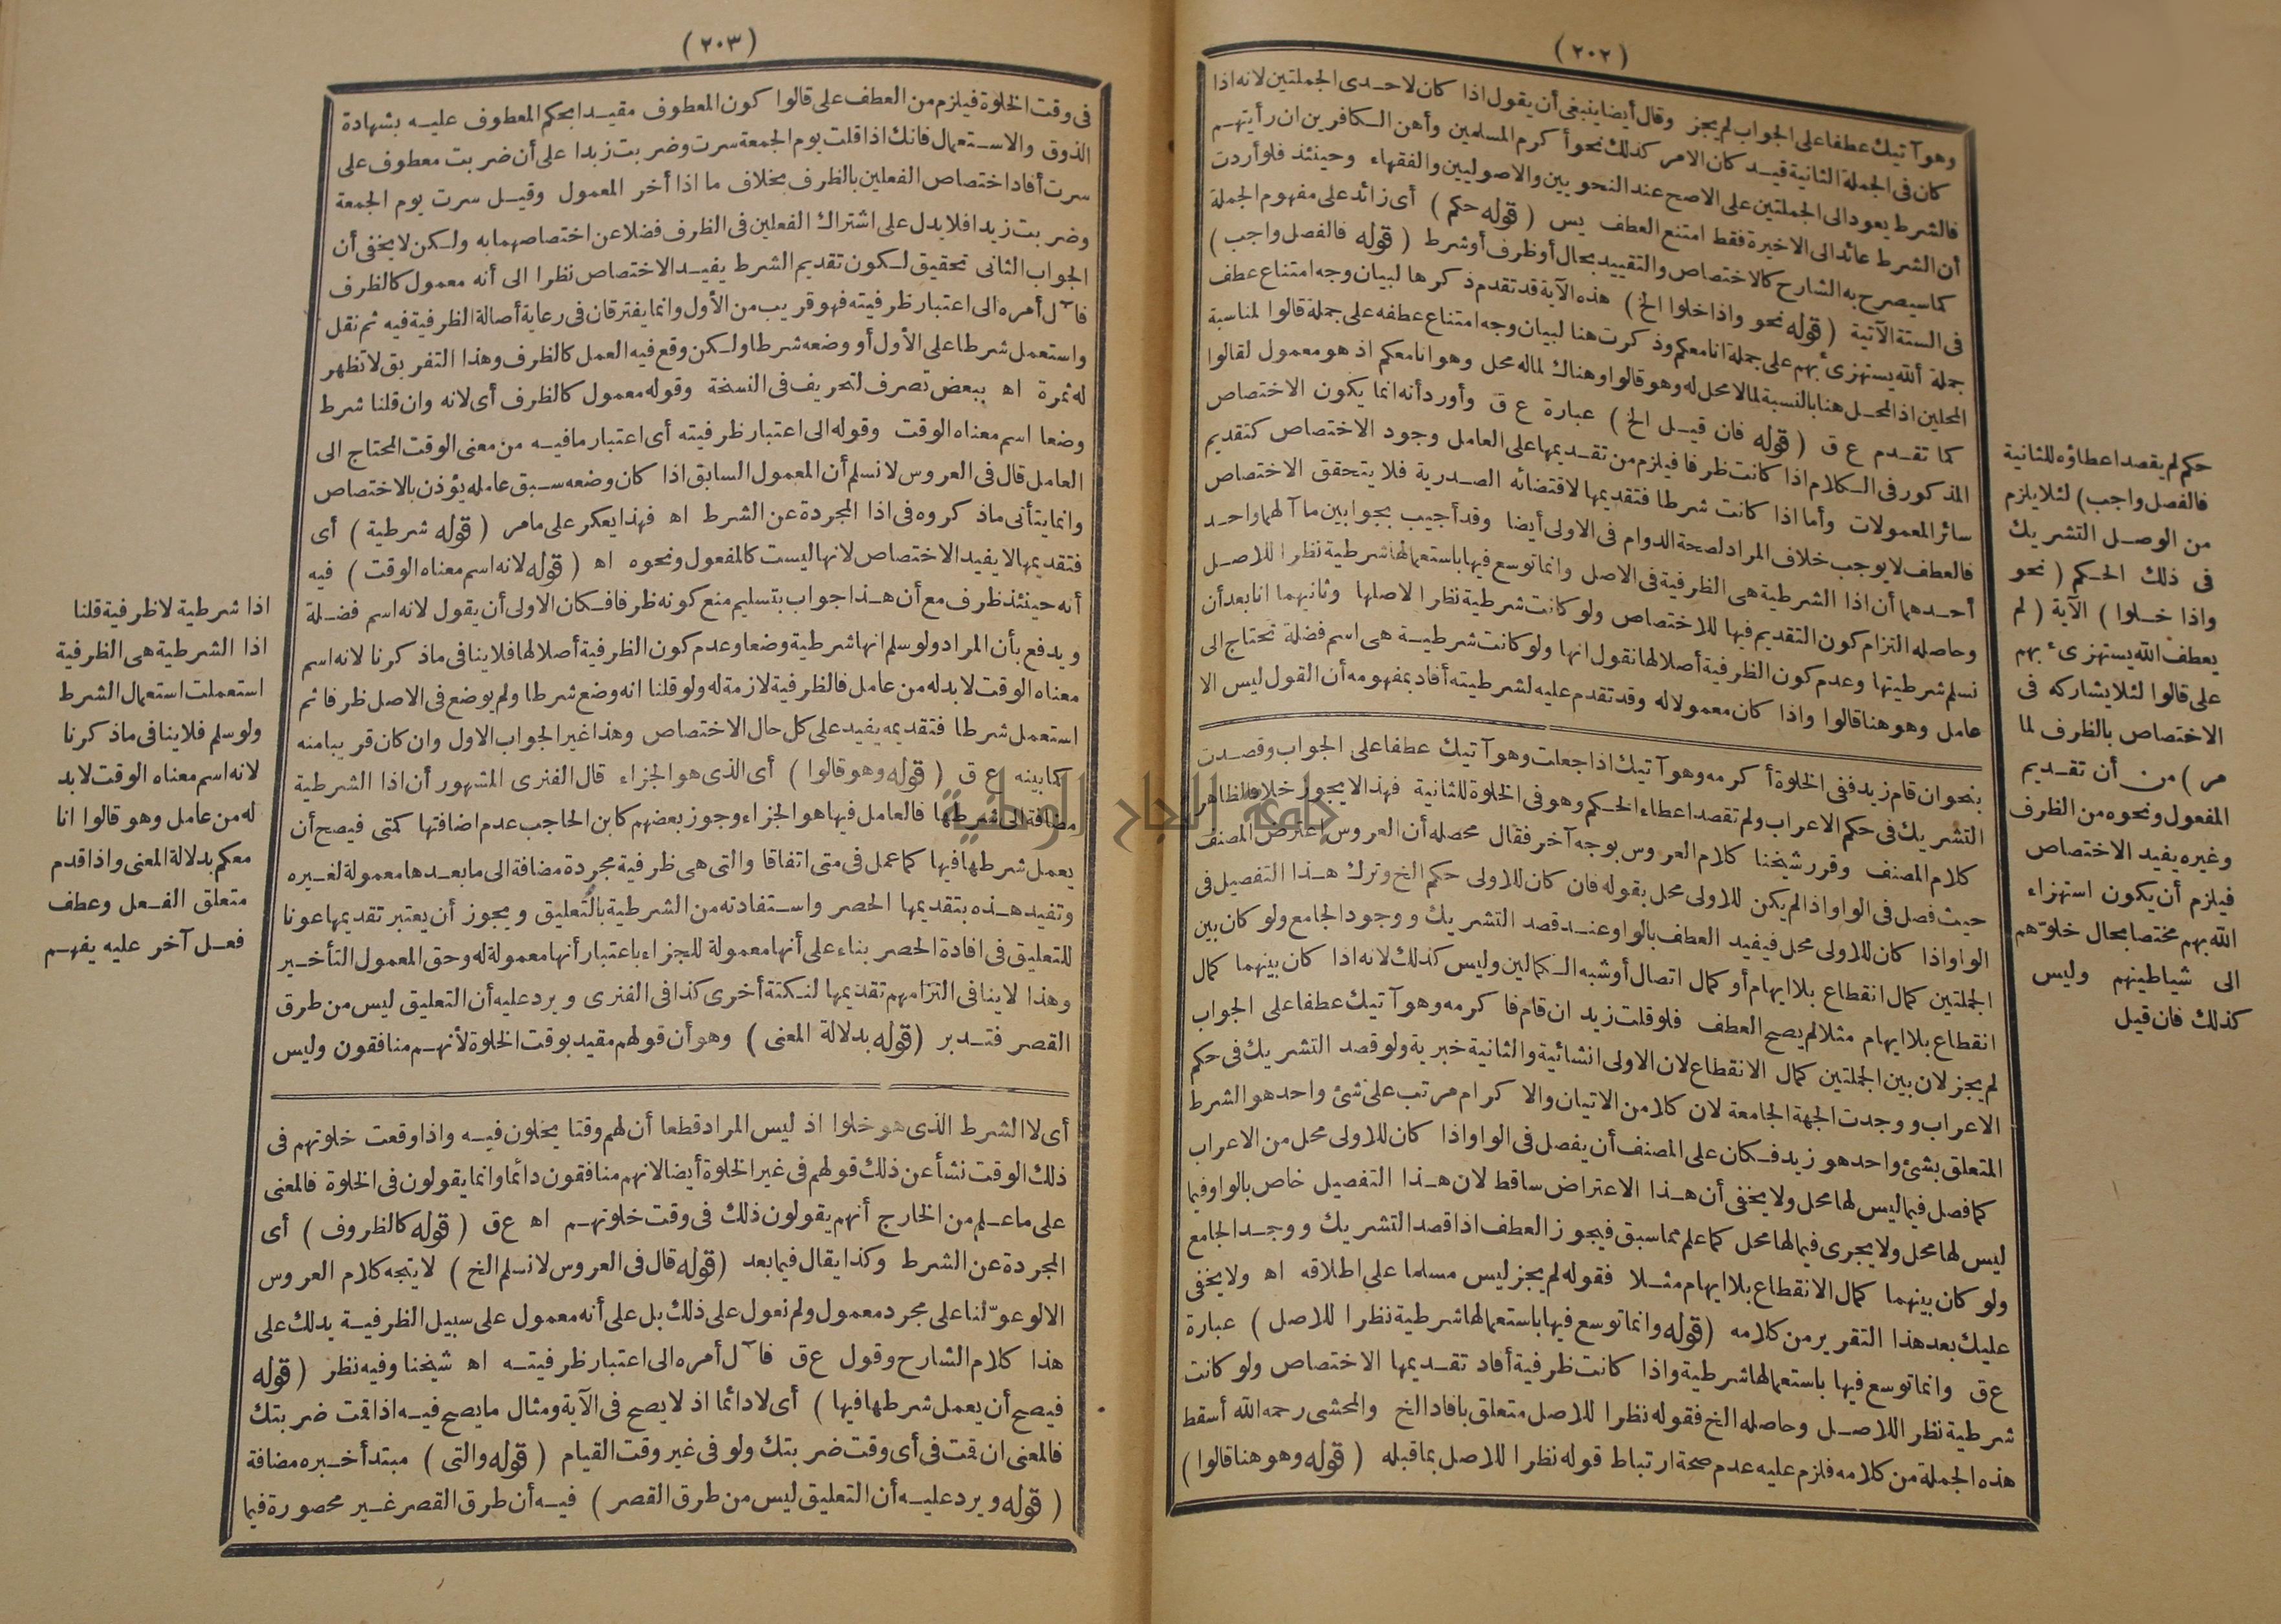 ( ٢٠٢ )
وهو آتيك عطفا على الجواب لم يجز وقال أيضا ينبغى أن يقول اذا كان لاحدى الجملتين لانه اذا
كان فى الجملة الثانية قيد كان الامر كذلك نحو أكرم المسلمين وأهن الكافرين ان رأيتهم
فالشرط يعود الى الجملتين على الاصح عند النحويين والاصوليين والفقهاء وحينئذ فلو أردت
أن الشرط عائد الى الاخيرة فقط امتنع العطف يس ( قوله حكم ) أى زائد على مفهوم الجملة
كما سيصرح به الشارح كالاختصاص والتقييد بحال أو ظرف أو شرط ( قوله فالفصل واجب )
فى الستة الآتية ( قوله نحو واذا خلوا الخ ) هذه الآية قد تقدم ذكرها لبيان وجه امتناع عطف
جملة ألله يستهزئ بهم على جملة انا معكم وذكرت هنا لبيان وجه امتناع عطفه على جملة قالوا لمناسبة
المحلين اذ المحل هنا بالنسبة لما لا محل له وهو قالوا وهناك لما له محل وهو انا معكم اذ هو معمول لقالوا
كما تقدم ع ق ( قوله فان قيل الخ ) عبارة ع ق وأورد أنه انما يكون الاختصاص
المذكور فى الكلام اذا كانت ظرفا فيلزم من تقديمها على العامل وجود الاختصاص كتقديم
سائر المعمولات وأما اذا كانت شرطا فتقديمها لاقتضائه الصدرية فلا يتحقق الاختصاص
فالعطف لا يوجب خلاف المراد لصحة الدوام فى الاولى أيضا وقد أجيب بجوابين مآلهما واحد
أحدهما أن اذا الشرطية هى الظرفية فى الاصل وانما توسع فيها باستعمالها شرطية نظرا للاصل
وحاصله التزام كون التقديم فيها للاختصاص ولو كانت شرطية نظرا لاصلها وثانيهما انا بعد أن
نسلم شرطيتها وعدم كون الظرفية أصلا لها نقول انها ولو كانت شرطية هى اسم فضلة تحتاج الى
عامل وهو هنا قالوا واذا كان معمولا له وقد تقدم عليه لشرطيته أفاد بمفهومه أن القول ليس الا
بنحو ان قام زيد ففى الخلوة أكرمه وهو آتيك اذا جعلت وهو آتيك عطفا على الجواب وقصدت
التشريك فى حكم الاعراب ولم تقصد اعطاء الحكم وهو فى الخلوة للثانية فهذا لا يجوز خلاف ظاهر
كلام المصنف وقرر شيخنا كلام العروس بوجه آخر فقال محصله أن العروس اعترض المصنف
حيث فصل فى الواو اذا لم يكن للاولى محل بقوله فان كان للاولى حكم الخ وترك هذا التفصيل فى
الواو اذا كان للاولى محل فيفيد العطف بالواو عند قصد التشريك ووجود الجامع ولو كان بين
الجملتين كمال انقطاع بلا ايهام أو كمال اتصال أو شبه الكمالين وليس كذلك لانه اذا كان بينهما كمال
انقطاع بلا ايهام مثلا لم يصح العطف فلو قلت زيد ان قام فاكرمه وهو آتيك عطفا على الجواب
لم يجز لان بين الجملتين كمال الانقطاع لان الاولى انشائية والثانية خبرية ولو قصد التشريك فى حكم
الاعراب ووجدت الجهة الجامعة لان كلا من الاتيان والاكرام مرتب على شئ واحد هو الشرط
المتعلق بشئ واحد هو زيد فكان على المصنف أن يفصل فى الواو اذا كان للاولى محل من الاعراب
كما فصل فيما ليس لها محل ولا يخفى أن هذا الاعتراض ساقط لان هذا التفصيل خاص بالواو فيما
ليس لها محل ولا يجرى فيما لها محل كما علم مما سبق فيجوز العطف اذا قصد التشريك ووجد الجامع
ولو كان بينهما كمال الانقطاع بلا ايهام مثلا فقوله لم يجز ليس مسلما على اطلاقه اه ولا يخفى
عليك بعد هذا التقرير من كلامه ( قوله وانما توسع فيها باستعمالها شرطية نظرا للاصل ) عبارة
ع ق وانما توسع فيها باستعمالها شرطية واذا كانت ظرفية أفاد تقديمها الاختصاص ولو كانت
شرطية نظرا للاصل وحاصله الخ فقوله نظرا للاصل متعلق بافاد الخ والمحشى رحمه الله أسقط
هذه الجملة من كلامه فلزم عليه عدم صحة ارتباط قوله نظرا للاصل بما قبله ( قوله وهو هنا قالوا )
حكم لم يقصد اعطاؤه للثانية
فالفصل واجب) لئلا يلزم
من الوصل التشريك
فى ذلك الحكم ( نحو
واذا خلوا ) الآية ( لم
يعطف الله يستهزئ بهم
على قالوا لئلا يشاركه فى
الاختصاص بالظرف لما
مر ) من أن تقديم
المفعول ونحوه من الظرف
وغيره يفيد الاختصاص
فيلزم أن يكون استهزاء
الله بهم مختصا بحال خلوتهم
الى شياطينهم وليس
كذلك فان قيل
( ٢٠٣ )
فى وقت الخلوة فيلزم من العطف على قالوا كون المعطوف مقيدا بحكم المعطوف عليه بشهادة
الذوق والاستعمال فانك اذا قلت يوم الجمعة سرت وضربت زيدا على أن ضربت معطوف على
سرت أفاد اختصاص الفعلين بالظرف بخلاف ما اذا أخر المعمول وقيل سرت يوم الجمعة
وضربت زيدا فلا يدل على اشتراك الفعلين فى الظرف فضلا عن اختصاصهما به ولكن لا يخفى أن
الجواب الثانى تحقيق لكون تقديم الشرط يفيد الاختصاص نظرا الى أنه معمول كالظرف
فآل أمره الى اعتبار ظرفيته فهو قريب من الأول وانما يفترقان فى رعاية أصالة الظرفية فيه ثم نقل
واستعمل شرطا على الأول أو وضعه شرطا ولكن وقع فيه العمل كالظرف وهذا التفريق لا تظهر
له ثمرة اه ببعض تصرف لتحريف فى النسخة وقوله معمول كالظرف أى لانه وان قلنا شرط
وضعا اسم معناه الوقت وقوله الى اعتبار ظرفيته أى اعتبار ما فيه من معنى الوقت المحتاج الى
العامل قال فى العروس لا نسلم أن المعمول السابق اذا كان وضعه سبق عامله يؤذن بالاختصاص
وانما يتأتى ما ذكروه فى اذا المجردة عن الشرط اه فهذا يعكر على ما مر ( قوله شرطية ) أى
فتقديمها لا يفيد الاختصاص لانها ليست كالمفعول ونحوه اه ( قوله لانه اسم معناه الوقت ) فيه
أنه حينئذ ظرف مع أن هذا جواب بتسليم منع كونه ظرفا فكان الاولى أن يقول لانه اسم فضلة
ويدفع بأن المراد ولو سلم انها شرطية وضعا وعدم كون الظرفية أصلا لها فلا ينافى ما ذكرنا لانه اسم
معناه الوقت لا بد له من عامل فالظرفية لازمة له ولو قلنا انه وضع شرطا ولم يوضع فى الاصل ظرفا ثم
استعمل شرطا فتقديمه يفيد على كل حال الاختصاص وهذا غير الجواب الاول وان كان قريبا منه
كما بينه ع ق ( قوله وهو قالوا ) أى الذى هو الجزاء قال الفنرى المشهور أن اذا الشرطية
مضافة الى شرطها فالعامل فيها هو الجزاء وجوز بعضهم كابن الحاجب عدم اضافتها كمتى فيصح أن
يعمل شرطها فيها كما عمل فى متى اتفاقا والتى هى ظرفية مجردة مضافة الى ما بعدها معمولة لغيره
وتفيد هذه بتقديمها الحصر واستفادته من الشرطية بالتعليق ويجوز أن يعتبر تقديمها عونا
للتعليق فى افادة الحصر بناء على أنها معمولة للجزاء باعتبار أنها معمولة له وحق المعمول التأخير
وهذا لا ينافى التزامهم تقديمها لنكتة أخرى كذا فى الفنرى ويرد عليه أن التعليق ليس من طرق
القصر فتدبر ( قوله بدلالة المعنى ) وهو أن قولهم مقيد بوقت الخلوة لأنهم منافقون وليس
أى لا الشرط الذى هو خلوا اذ ليس المراد قطعا أن لهم وقتا يخلون فيه واذا وقعت خلوتهم فى
ذلك الوقت نشأ عن ذلك قولهم فى غير الخلوة أيضا لانهم منافقون دائما وانما يقولون فى الخلوة فالمعنى
على ما علم من الخارج أنهم يقولون ذلك فى وقت خلوتهم اه ع ق ( قوله كالظروف ) أى
المجردة عن الشرط وكذا يقال فيما بعد ( قوله قال فى العروس لا نسلم الخ ) لا يتجه كلام العروس
الا لو عوّلنا على مجرد معمول ولم نعول على ذلك بل على أنه معمول على سبيل الظرفية يدلك على
هذا كلام الشارح وقول ع ق فآل أمره الى اعتبار ظرفيته اه شيخنا وفيه نظر ( قوله
فيصح أن يعمل شرطها فيها ) أى لا دائما اذ لا يصح فى الآية ومثال ما يصح فيه اذا قمت ضربتك
فالمعنى ان قمت فى أى وقت ضربتك ولو فى غير وقت القيام ( قوله والتى ) مبتدأ خبره مضافة
( قوله ويرد عليه أن التعليق ليس من طرق القصر ) فيه أن طرق القصر غير محصورة فيما
اذا شرطية لا ظرفية قلنا
اذا الشرطية هى الظرفية
استعملت استعمال الشرط
ولو سلم فلا ينافى ما ذكرنا
لانه اسم معناه الوقت لا بد
له من عامل وهو قالوا انا
معكم بدلالة المعنى واذا قدم
متعلق الفعل وعطف
فعل آخر عليه يفهم
جامعة النجاح الوطنية